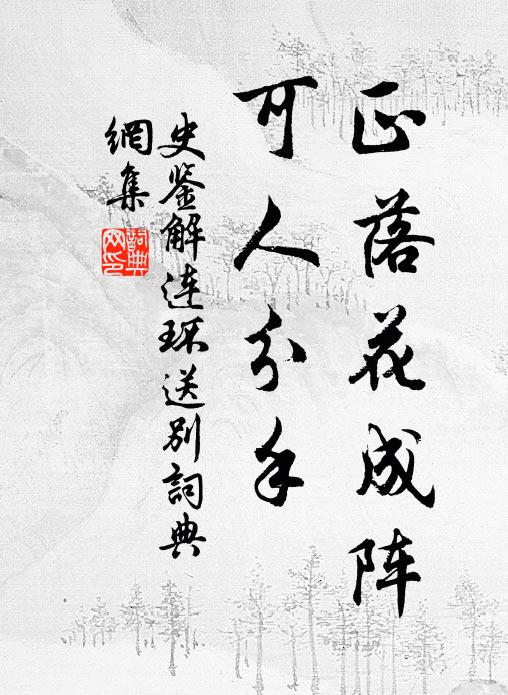 正落花成阵
可人分手
史鉴解连环送别詞典
網集
詞典
网印